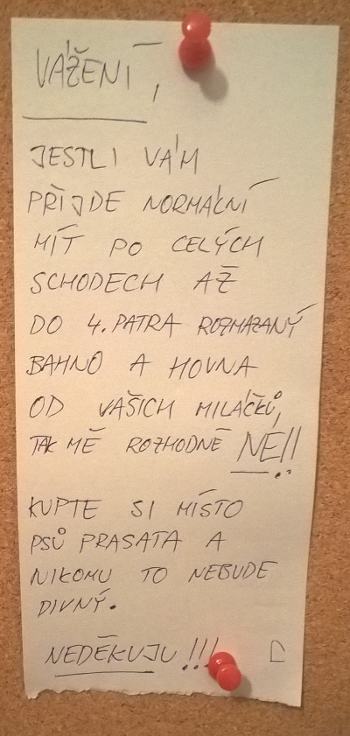 VÁŽENÍ,
JESTLI VÁM
PŘIJDE NORMÁLNÍ
MÍT PO CELÝCH
SCHODECH AŽ
DO 4. PATRA ROZMAZANÝ
BAHNO A HOVNA
OD VAŠICH MILÁČKŮ,
TAK MĚ ROZHODNĚ NE!!
KUPTE SI MÍSTO
PSŮ PRASATA A
NIKOMU TO NEBUDE
DIVNÝ.
NEDĚKUJU !!! D